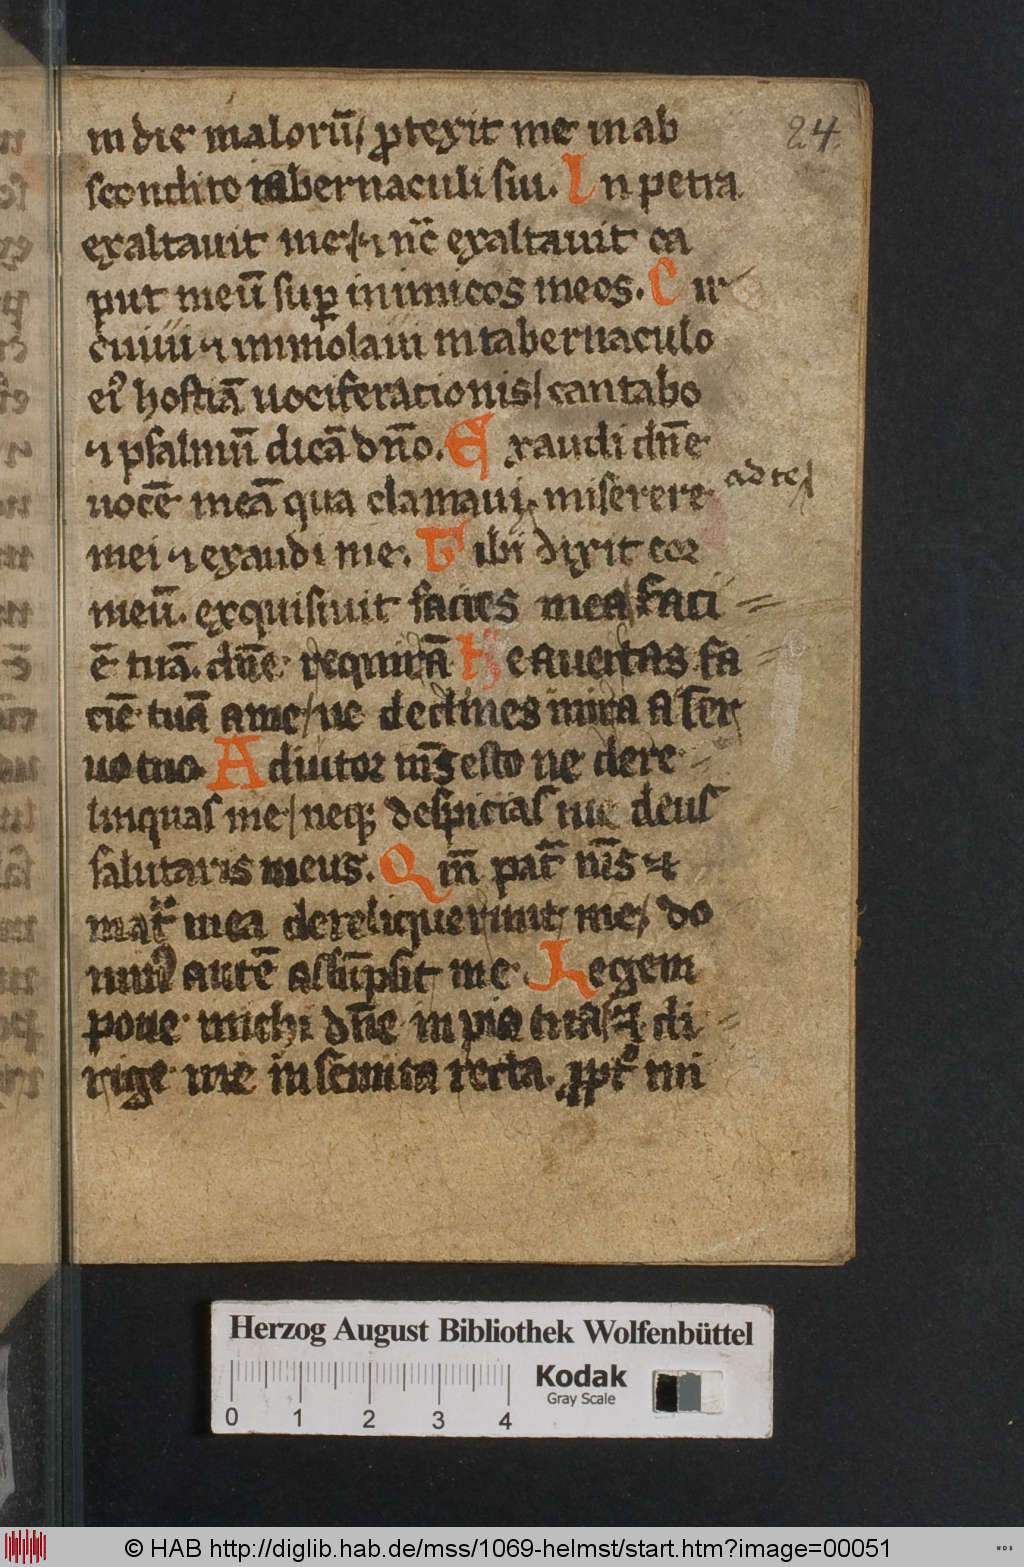 in die maloꝝ/ ꝓtexit me in ab
24.
scondito tabernaculi sui. In petra
exaltauit me/ ⁊ nc̄ exaltauit ca
put meū suꝑ inimicos meos. Cir
cuiui ⁊ immolaui in tabernaculo
eiꝰ hostiā uociferationis/ cantabo
⁊ psalmū dicā dn̄o. Exaudi dn̄e
uocē meā qua clamaui, miserere
ad te/
mei ⁊ exaudi me. Tibi dixit cor
meū. exquisiuit facies mea/ faci
ē tuā. dn̄e requirā Ne auertas fa
ciē tuā a me/ ne declines in ira a ser
uo tuo. Adiutor ms̄ esto ne dere
linquas me/ neqꝫ despicias me deus
salutaris meus. Qm̄ pat̄ ms̄ ⁊
mat̄ mea dereliquerunt me/ do
minꝰ autē assūpsit me. Legem
pone michi dn̄e in uia tua/ ⁊ di
rige me in semita recta. ꝓpt̄ ini
Herzog August Bibliothek Wolfenbüttel
Kodak
Gray Scale
0 1 2 3 4
© HAB http://diglib.hab.de/mss/1069-helmst/start.htm?image=00051